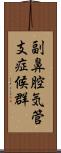 副鼻腔気管
支症候群